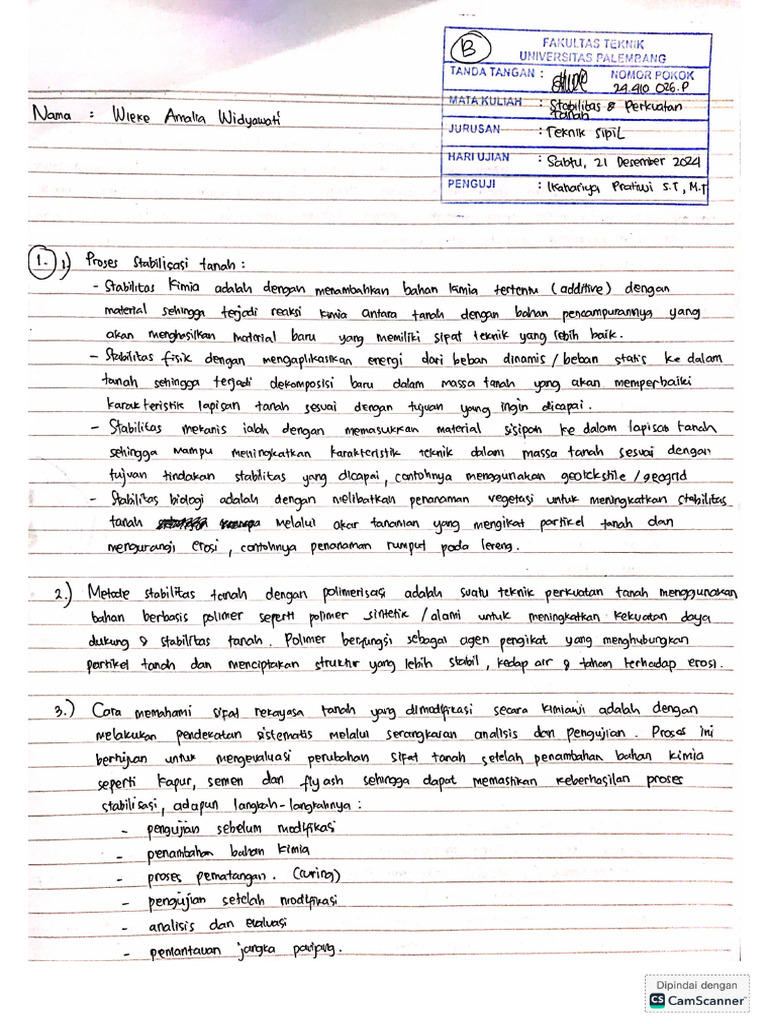 B
FAKULTAS TEKNIK
UNIVERSITAS PALEMBANG
TANDA TANGAN :
NOMOR POKOK
24.410 026.P
MATA KULIAH : Stabilitas & Perkuatan
tanah
JURUSAN : Teknik Sipil
HARI UJIAN : Sabtu, 21 Desember 2024
PENGUJI : Ikahariya Pratiwi S.T, M.T
Nama : Wieke Amalia Widyawati
1. 1) Proses Stabilisasi tanah :
- Stabilitas Kimia adalah dengan menambahkan bahan kimia tertentu (additive) dengan
material sehingga terjadi reaksi kimia antara tanah dengan bahan pencampurannya yang
akan menghasilkan material baru yang memiliki sipat teknik yang lebih baik.
- Stabilitas fisik dengan mengaplikasikan energi dari beban dinamis / beban statis ke dalam
tanah sehingga terjadi dekomposisi baru dalam massa tanah yang akan memperbaiki
karakteristik lapisan tanah sesuai dengan tujuan yang ingin dicapai.
- Stabilitas mekanis ialah dengan memasukkan material sisipan ke dalam lapisan tanah
sehingga mampu meningkatkan karakteristik teknik dalam massa tanah sesuai dengan
tujuan tindakan stabilitas yang dicapai, contohnya menggunakan geotekstile / geogrid
- Stabilitas biologi adalah dengan melibatkan penanaman vegetasi untuk meningkatkan stabilitas
tanah melalui akar tanaman yang mengikat partikel tanah dan
mengurangi erosi, contohnya penanaman rumput pada lereng.
2.) Metode stabilitas tanah dengan polimerisasi adalah suatu teknik perkuatan tanah menggunakan
bahan berbasis polimer seperti polimer sintetik / alami untuk meningkatkan kekuatan daya
dukung & stabilitas tanah. Polimer berfungsi sebagai agen pengikat yang menghubungkan
partikel tanah dan menciptakan struktur yang lebih stabil, kedap air & tahan terhadap erosi.
3.) Cara memahami sifat rekayasa tanah yang dimodifikasi secara kimiawi adalah dengan
melakukan pendekatan sistematis melalui serangkaian analisis dan pengujian. Proses ini
bertujuan untuk mengevaluasi perubahan sifat tanah setelah penambahan bahan kimia
seperti kapur, semen dan fly ash sehingga dapat memastikan keberhasilan proses
stabilisasi, adapun langkah-langkahnya :
- pengujian sebelum modifikasi
- penambahan bahan kimia
- proses pematangan. (curing)
- pengujian setelah modifikasi
- analisis dan evaluasi
- pemantauan jangka panjang.
Dipindai dengan
CS CamScanner